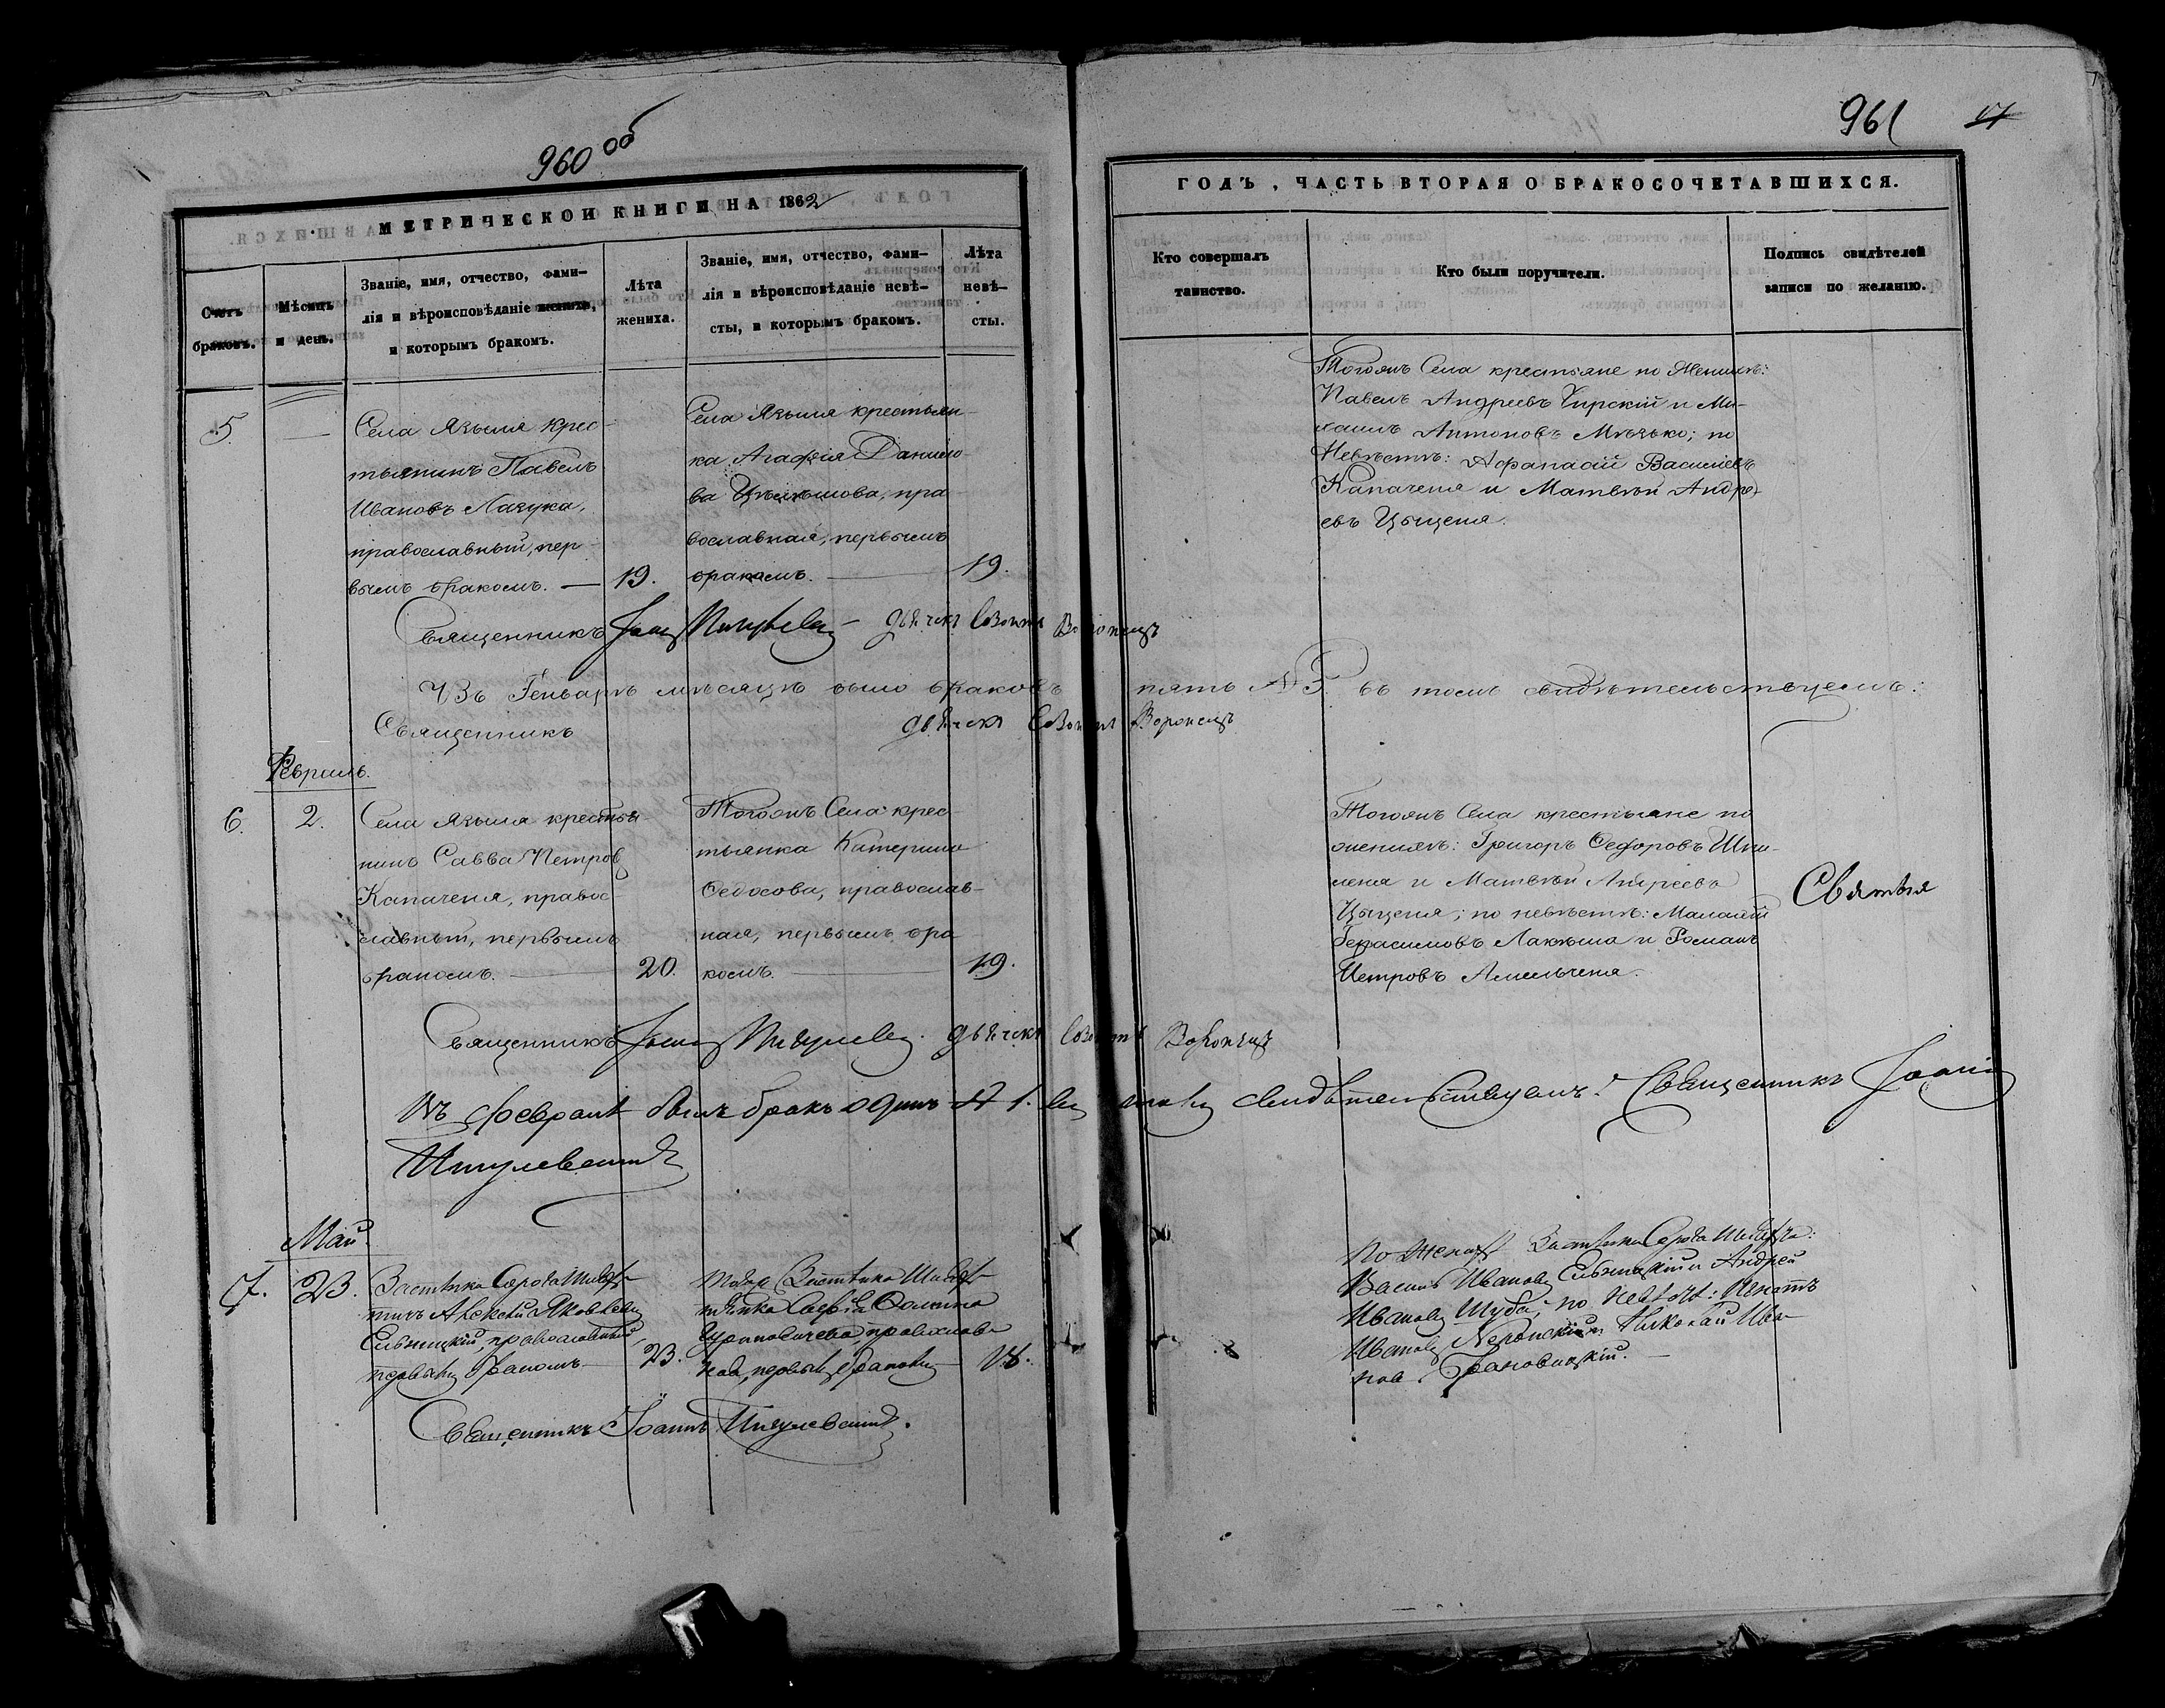 960 об
МЕТРИЧЕСКОЙ КНИГИ НА 1862
Счетъ браковъ.
Мѣсяцъ и день.
Званіе, имя, отчество, фами-
лія и вѣроисповѣданіе жениха,
и которымъ бракомъ.
Лѣта
жениха.
Званіе, имя, отчество, фами-
лія и вѣроисповѣданіе невѣ-
сты, и которымъ бракомъ.
Лѣта
невѣ-
сты.
5.
Села Языля крес-
тьянинъ Павелъ
Ивановъ Лазука,
православный, пер-
вымъ бракомъ.
19.
Села Языля крестьян-
ка Агафія Данило-
ва, пра-
вославная, первымъ
бракомъ.
19.
Священникъ дьячекъ Созонтъ Воронецъ
Въ Генварѣ мѣсяцѣ было браковъ пять № 5. въ томъ свидѣтельствуемъ:
Священникъ дьячекъ Созонтъ Воронецъ
Февраль.
6.
2.
Села Языля крестья-
нинъ Савва Петровъ
Капаченя, правос-
лавный, первымъ
бракомъ.
20.
Тогожъ Села крес-
тьянка Катерина
Федосова, православ-
ная, первымъ бра
комъ.
19.
Священникъ дьячекъ Созонтъ Воронецъ
Въ февралѣ былъ бракъ одинъ № 1. въ томъ свидѣтельствуемъ: Священникъ Іоаннъ
Пигулевскій
Май.
7.
23.
Алексѣй Яковлевъ
православный,
первымъ бракомъ
23.
православ
ная, первымъ бракомъ
18.
Священникъ Іоаннъ Пигулевскій.
961
17
ГОДЪ, ЧАСТЬ ВТОРАЯ О БРАКОСОЧЕТАВШИХСЯ.
Кто совершалъ
таинство.
Кто были поручители.
Подпись свидѣтелей
записи по желанію.
Тогожъ Села крестьяне по Женихѣ:
Павелъ Андреевъ Чирскій и Ми-
хаилъ Антоновъ Мѣзько; по
Невѣстѣ: Афанасій Васильевъ
Капаченя и Матвѣй Андре-
евъ Цыценя.
Тогожъ Села крестьяне по
женихѣ: Григоръ Федоровъ Шпи-
леня и Матвѣй Андреевъ
Цыценя; по невѣстѣ: Малахій
Герасимовъ и Романъ
Петровъ Амельченя.
Святыя
По женихѣ
Василь Ивановъ и Андрей
Ивановъ Шуба; по невѣстѣ: Игнатъ
Ивановъ и Николай Ива-
новъ Грановскій.